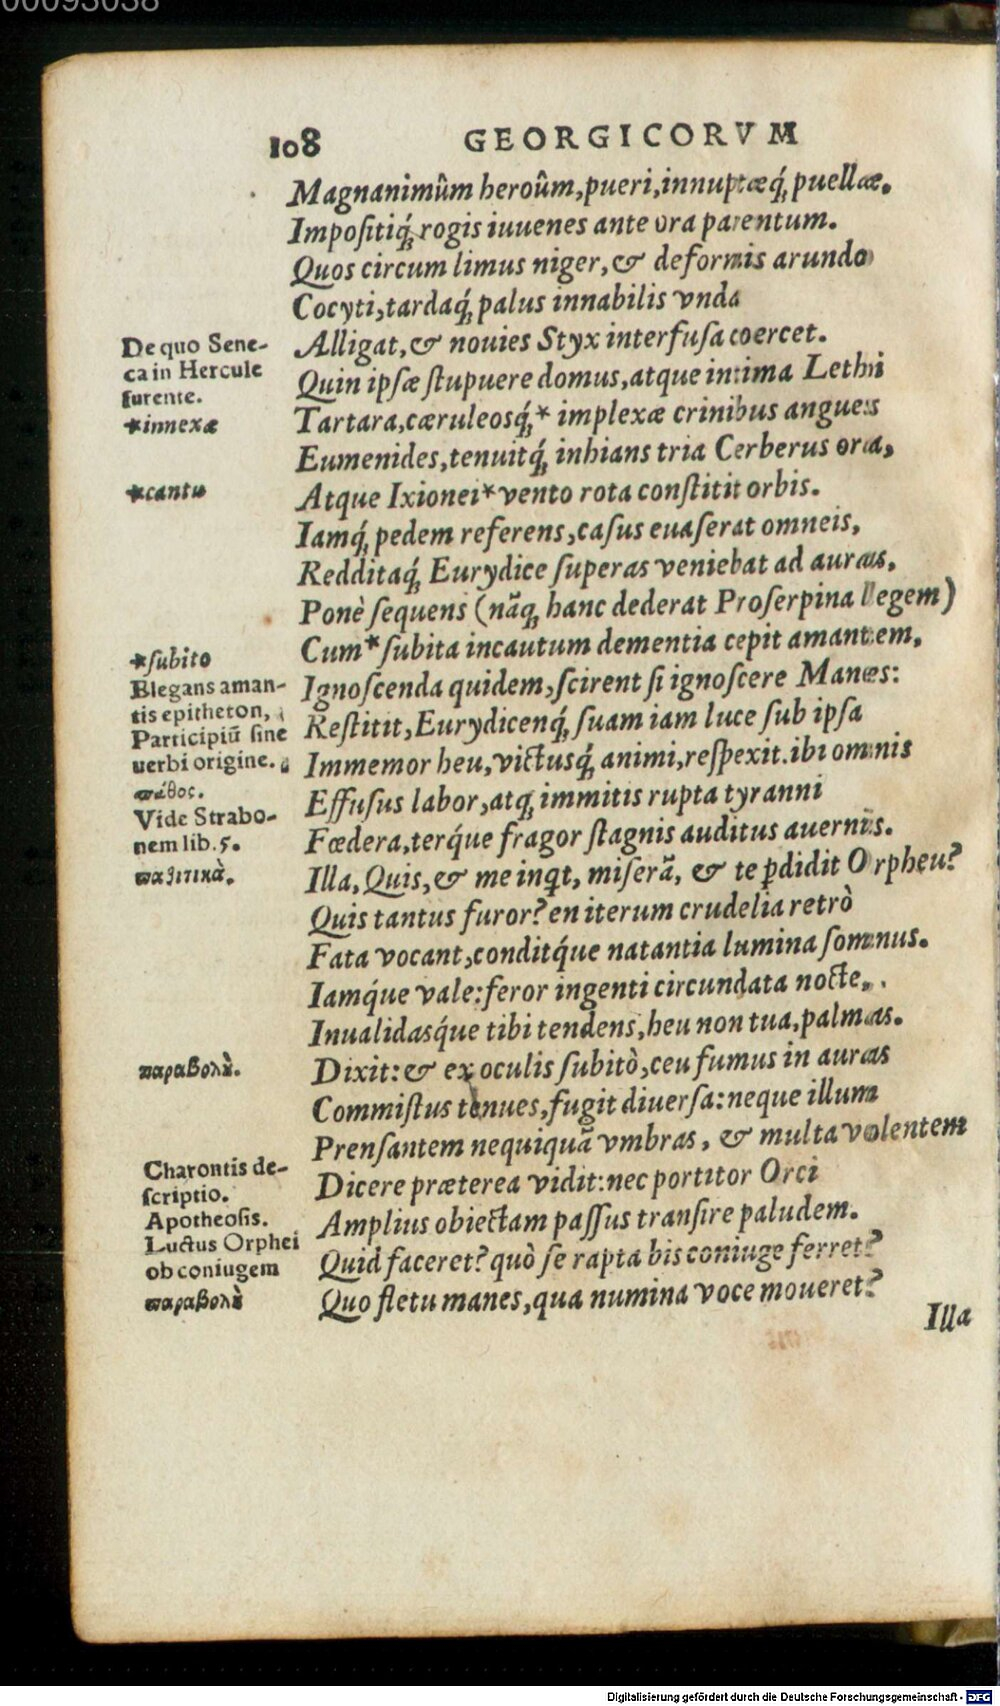 00093038
108 GEORGICORVM
Magnanimûm heroûm, pueri, innuptæq́; puellæ.
Impositiq́; rogis iuuenes ante ora parentum.
Quos circum limus niger, & deformis arundo
Cocyti, tardaq́; palus innabilis vnda
Alligat, & nouies Styx interfusa coercet.
Quin ipsæ stupuere domus, atque intima Lethi
Tartara, cæruleosq́;* implexæ crinibus angues
Eumenides, tenuitq́; inhians tria Cerberus ora,
Atque Ixionei* vento rota constitit orbis.
Iamq́; pedem referens, casus euaserat omneis,
Redditaq́; Eurydice superas veniebat ad auras,
Ponè sequens (nāq; hanc dederat Proserpina legem)
Cum* subita incautum dementia cepit amantem,
Ignoscenda quidem, scirent si ignoscere Manes:
Restitit, Eurydicenq́; suam iam luce sub ipsa
Immemor heu, victusq́; animi, respexit. ibi omnis
Effusus labor, atq; immitis rupta tyranni
Fœdera, terq́ue fragor stagnis auditus auernis.
Illa, Quis, & me inqt, miserā, & te ꝑdidit Orpheu?
Quis tantus furor? en iterum crudelia retrò
Fata vocant, conditq́ue natantia lumina somnus.
Iamq́ue vale: feror ingenti circundata nocte,
Inualidasq́ue tibi tendens, heu non tua, palmas.
Dixit: & ex oculis subitò, ceu fumus in auras
Commistus tenues, fugit diuersa: neque illum
Prensantem nequiquā vmbras, & multa volentem
Dicere præterea vidit: nec portitor Orci
Amplius obiectam passus transire paludem.
Quid faceret? quò se rapta bis coniuge ferret?
Quo fletu manes, qua numina voce moueret?
Illa
De quo Sene-
ca in Hercule
furente.
*innexæ
*cantu
*subito
Elegans aman-
tis epitheton,
Participiū sine
uerbi origine.
πάθος.
Vide Strabo-
nem lib. 5.
παθητικὰ.
παραβολὴ.
Charontis de-
scriptio.
Apotheosis.
Luctus Orphei
ob coniugem
παραβολὴ
Digitalisierung gefördert durch die Deutsche Forschungsgemeinschaft - DFG